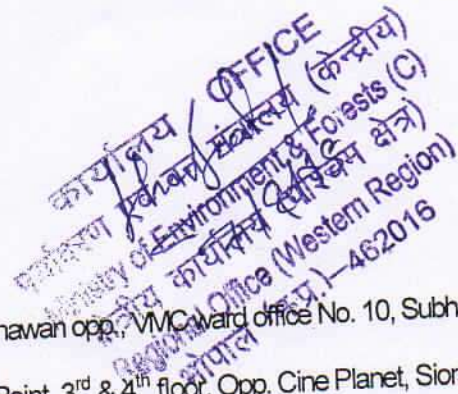 कार्यालय / OFFICE
पर्यावरण एवं वन मंत्रालय (केन्द्रीय)
Ministry of Environment & Forests (C)
क्षेत्रीय कार्यालय (पश्चिम क्षेत्र)
Regional Office (Western Region)
भोपाल (म.प्र.)–462016
hawan opp., VMC ward office No. 10, Subh
Point, 3rd & 4th floor, Opp. Cine Planet, Sion